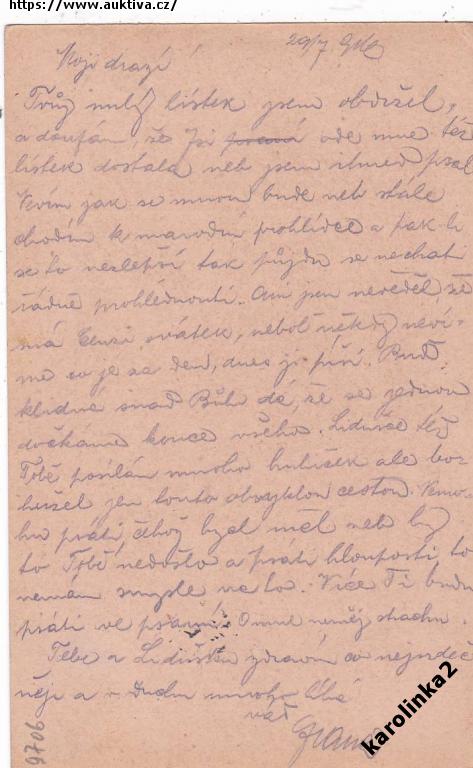 https://www.auktiva.cz/
29/7 916
Moji drazí!
Tvůj milý lístek jsem obdržel,
a doufám, že Jsi ode mne též
lístek dostala neb jsem ihned psal
Nevím jak se mnou bude neb stále
chodím k marodní prohlídce a pak
se to nezlepší tak půjdu se nechat
řádně prohlédnouti. Ani jsem nevěděl, že
má svátek, neboť někdy neví-
me co je za den, dnes je Buď
klidná snad Bůh dá, že se jednou
dočkáme konce všeho. Liduśce též
Tobě posílám mnoho hubiček ale bo-
hužel jen touto obvyklou cestou. Nemo-
hu psáti čehož bych měl neb by
to Tobě nedošlo a psáti hlouposti to
nemám smysle na to. Více Ti budu
psáti ve psaní. O mne neměj strachu.
Tebe a Lidušku zdravím co nejsrdeč
něji a v duchu mnoho líbá
váš
9706
karolinka2